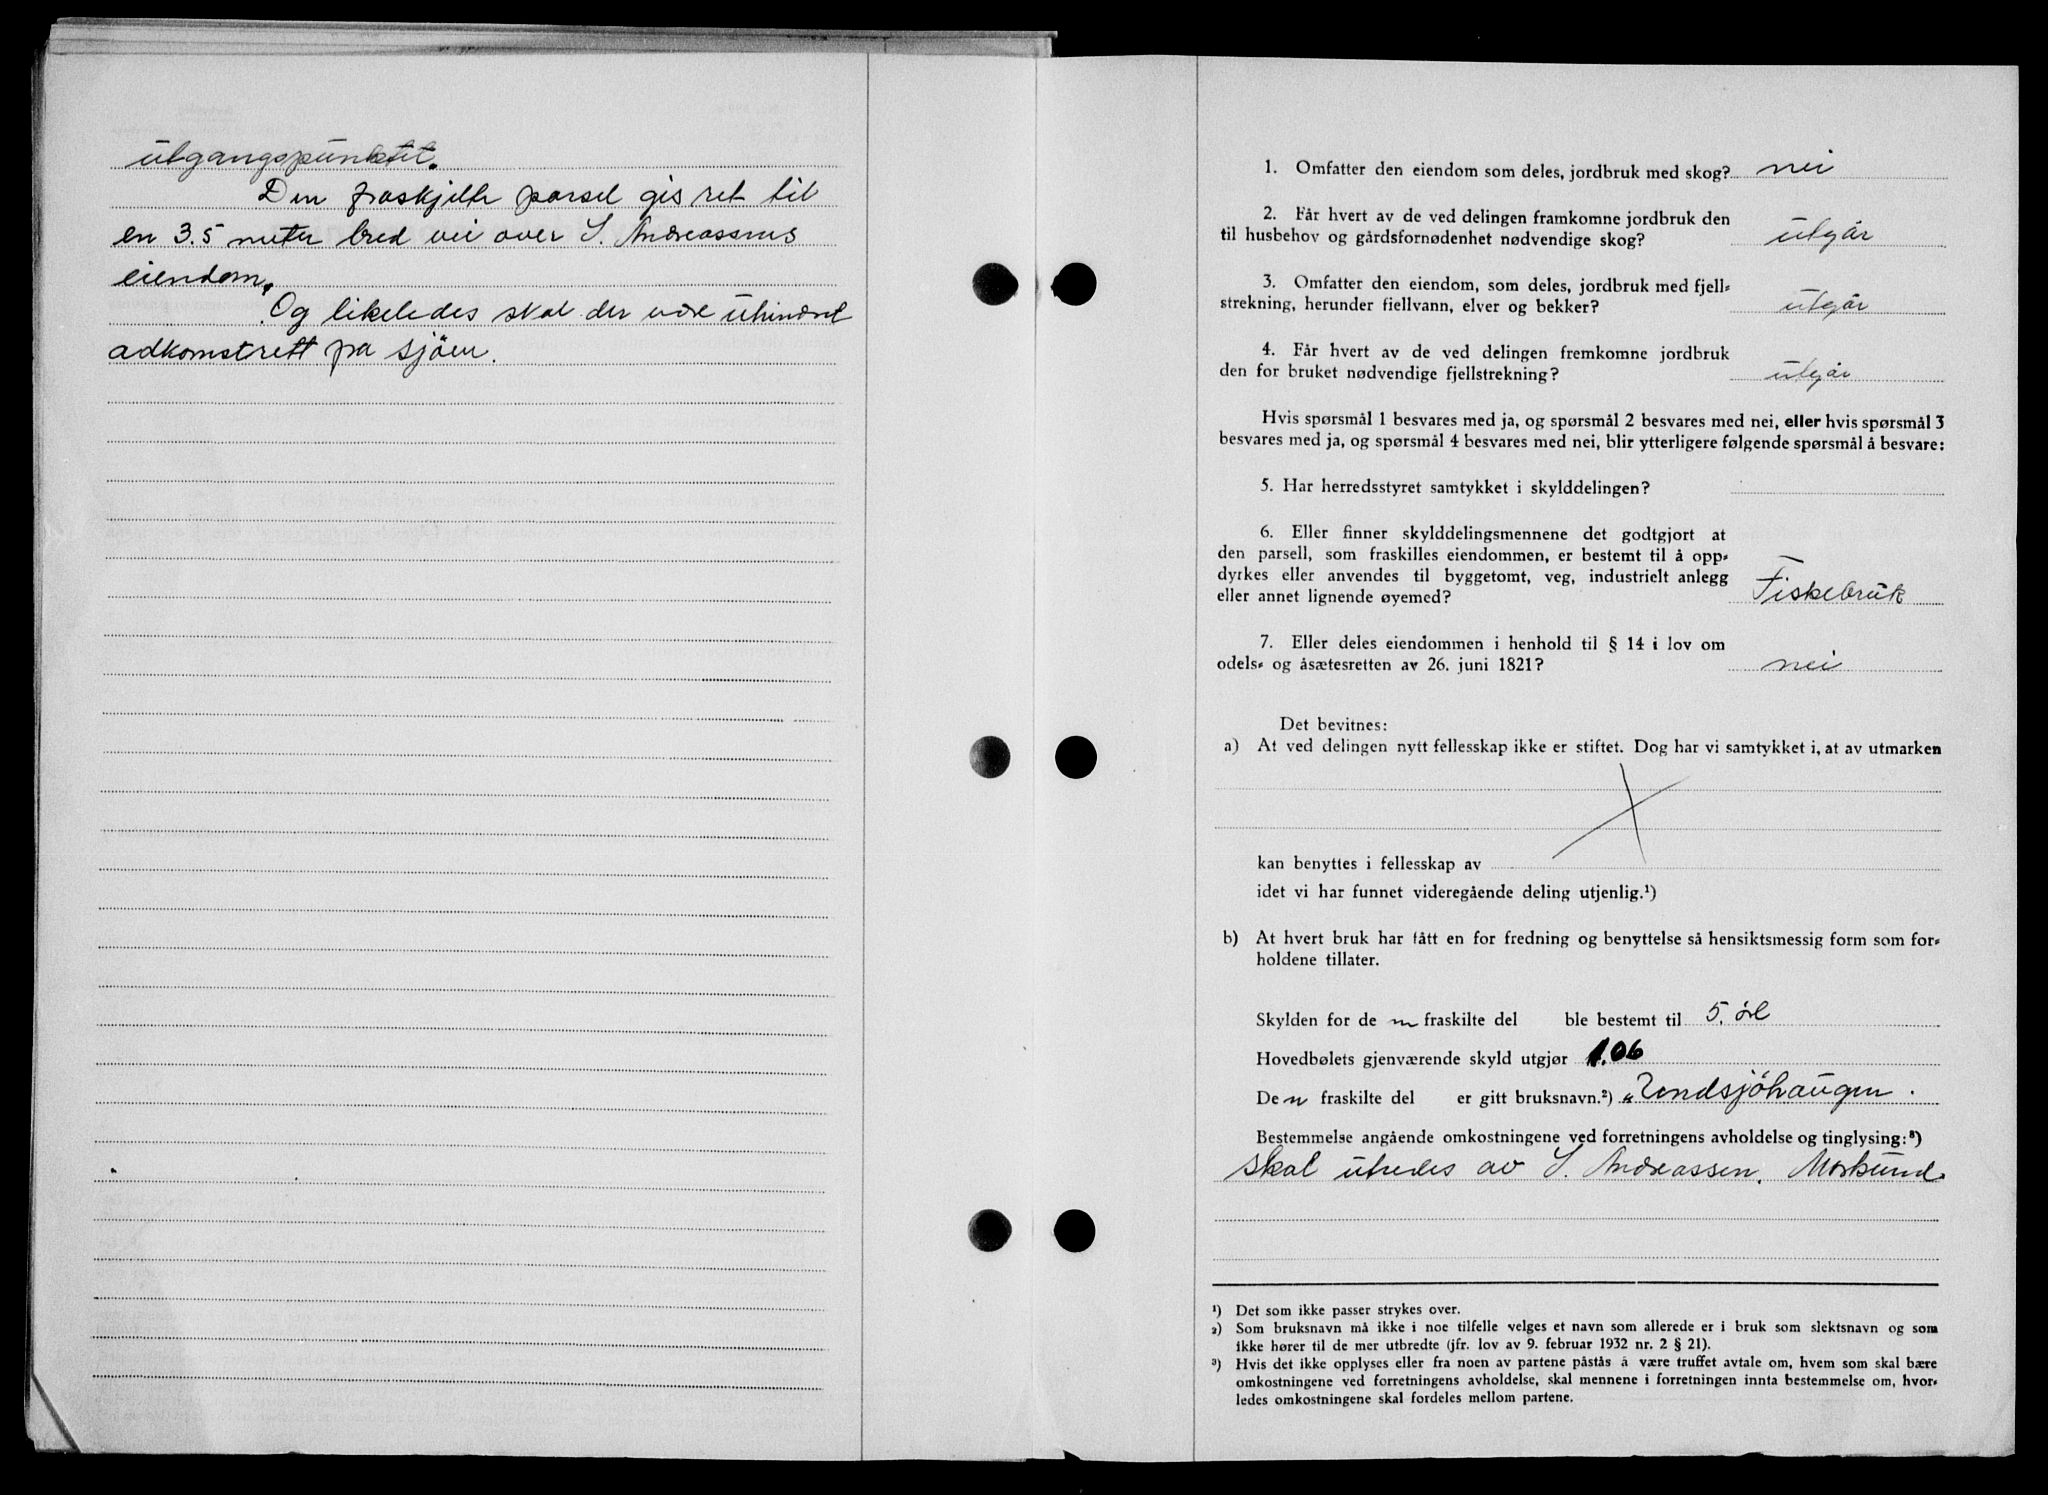 utgangspunktet.
Den fraskjilte parsel gis ret til
en 3.5 meter bred vei over S. Andreassens
eiendom.
Og likeledes skal der være uhindret
adkomstrett pa sjöen.
1. Omfatter den eiendom som deles, jordbruk med skog? nei
2. Får hvert av de ved delingen framkomne jordbruk den
til husbehov og gårdsfornødenhet nødvendige skog? utgår
3. Omfatter den eiendom, som deles, jordbruk med fjell-
strekning, herunder fjellvann, elver og bekker? utgår
4. Får hvert av de ved delingen fremkomne jordbruk
den for bruket nødvendige fjellstrekning? utgår
Hvis spørsmål 1 besvares med ja, og spørsmål 2 besvares med nei, eller hvis spørsmål 3
besvares med ja, og spørsmål 4 besvares med nei, blir ytterligere følgende spørsmål å besvare:
5. Har herredsstyret samtykket i skylddelingen?
6. Eller finner skylddelingsmennene det godtgjort at
den parsell, som fraskilles eiendommen, er bestemt til å opp-
dyrkes eller anvendes til byggetomt, veg, industrielt anlegg
eller annet lignende øyemed? Fiskebruk
7. Eller deles eiendommen i henhold til § 14 i lov om
odels- og åsætesretten av 26. juni 1821? nei
Det bevitnes:
a) At ved delingen nytt fellesskap ikke er stiftet. Dog har vi samtykket i, at av utmarken
kan benyttes i fellesskap av
idet vi har funnet videregående deling utjenlig.¹)
b) At hvert bruk har fått en for fredning og benyttelse så hensiktsmessig form som for-
holdene tillater.
Skylden for de n fraskilte del ble bestemt til 5. øre
Hovedbølets gjenværende skyld utgjør 1.06
De n fraskilte del er gitt bruksnavn.²)
Bestemmelse angående omkostningene ved forretningens avholdelse og tinglysing:³)
skal utredes av S. Andreassen. Morkund
¹) Det som ikke passer strykes over.
²) Som bruksnavn må ikke i noe tilfelle velges et navn som allerede er i bruk som slektsnavn og som
ikke hører til de mer utbredte (jfr. lov av 9. februar 1932 nr. 2 § 21).
³) Hvis det ikke opplyses eller fra noen av partene påstås å være truffet avtale om, hvem som skal bære
omkostningene ved forretningens avholdelse, skal mennene i forretningen innta bestemmelse om, hvor-
ledes omkostningene skal fordeles mellom partene.